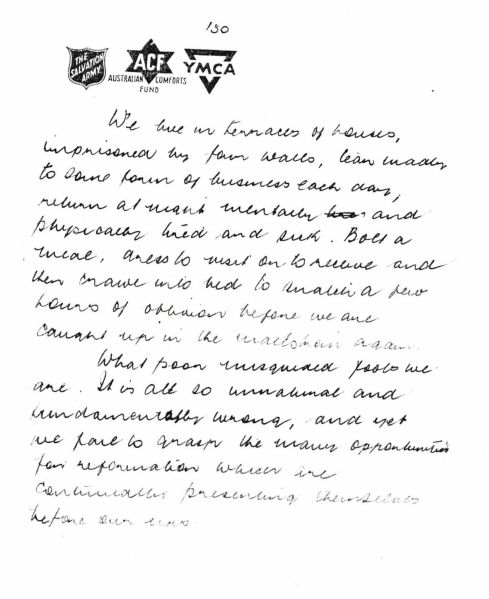 130
THE SALVATION ARMY
ACF
AUSTRALIAN COMFORTS FUND
YMCA
We live in terraces of houses,
imprisoned by four walls, tear madly
to some form of business each day,
return at night mentally and
physically tired and sick. Bolt a
meal, dress to visit or to receive and
then crawl into bed to snatch a few
hours of oblivion before we are
caught up in the maelstrom again.
What poor misguided fools we
are. It is all so unnatural and
fundamentally wrong, and yet
we fail to grasp the many opportunities
for reformation which are
continually presenting themselves
before our eyes.